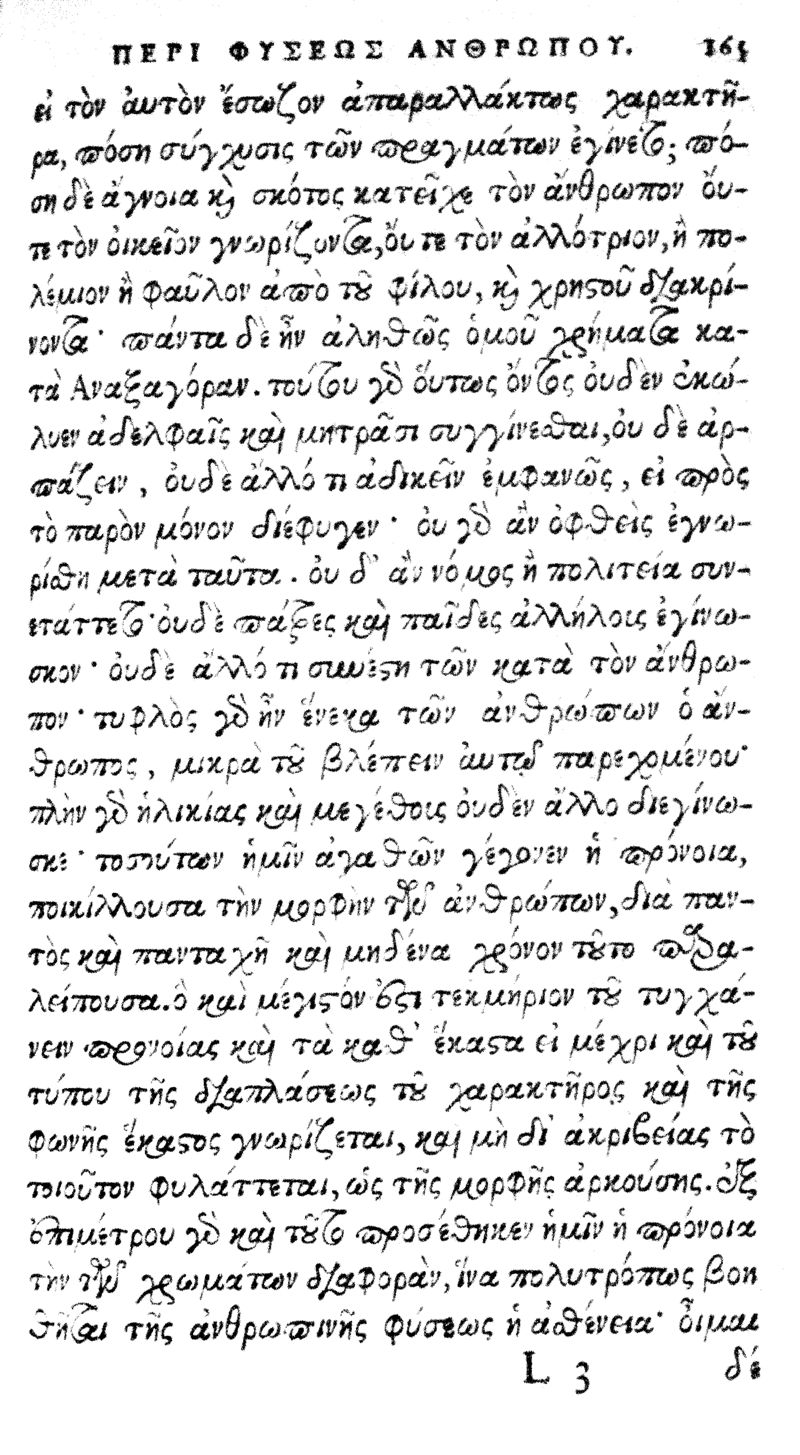 ΠΕΡΙ ΦΥΣΕΩΣ ΑΝΘΡΩΠΟΥ. 165
εἰ τὸν ἀυτὸν ἔσωζον ἀπαραλλάκτως χαρακτῆ-
ρα, πόση σύγχυσις τῶν πραγμάτων ἐγίνετο; πό-
ση δὲ ἄγνοια καὶ σκότος κατεῖχε τὸν ἄνθρωπον ὄυ-
τε τὸν ὀικεῖον γνωρίζοντα, ὄυτε τὸν ἀλλότριον, ἢ πο-
λέμιον ἢ φαῦλον ἀπὸ τοῦ φίλου, καὶ χρηστοῦ διακρί-
νοντα· πάντα δὲ ἦν ἀληθῶς ὁμοῦ χρήματα κα-
τὰ Αναξαγόραν. τούτου γὰρ ὅυτως ὄντος ὀυδὲν ἐκώ-
λυεν ἀδελφαῖς καὶ μητράσι συγγίνεσθαι, ὀυ δὲ ἁρ-
πάζειν, ὀυδὲ ἄλλό τι ἀδικεῖν ἐμφανῶς, εἰ πρὸς
τὸ παρὸν μόνον διέφυγεν· ὀυ γὰρ ἂν ὀφθεὶς ἐγνω-
ρίσθη μετὰ ταῦτα. ὀυ δ' ἂν νόμος ἢ πολιτεία συν-
ετάττετο· ὀυδὲ πατέρες καὶ παῖδες ἀλλήλοις ἐγίνω-
σκον· ὀυδὲ ἄλλό τι συνέστη τῶν κατὰ τὸν ἄνθρω-
πον· τυφλὸς γὰρ ἦν ἕνεκα τῶν ἀνθρώπων ὁ ἄν-
θρωπος, μικρὰ τοῦ βλέπειν ἀυτῷ παρεχομένου·
πλὴν γὰρ ἡλικίας καὶ μεγέθους ὀυδὲν ἄλλο διεγίνω-
σκε· τοσούτων ἡμῖν ἀγαθῶν γέγονεν ἡ πρόνοια,
ποικίλλουσα τὴν μορφὴν τῶν ἀνθρώπων, διὰ παν-
τὸς καὶ πανταχῆ καὶ μηδένα χρόνον τοῦτο παρα-
λείπουσα. ὃ καὶ μέγιστόν ἐστι τεκμήριον τοῦ τυγχά-
νειν προνοίας καὶ τὰ καθ' ἕκαστα εἰ μέχρι καὶ τοῦ
τύπου τῆς διαπλάσεως τοῦ χαρακτῆρος καὶ τῆς
φωνῆς ἕκαστος γνωρίζεται, καὶ μὴ δι' ἀκριβείας τὸ
τοιοῦτον φυλάττεται, ὡς τῆς μορφῆς ἀρκούσης. ἐξ
ἐπιμέτρου γὰρ καὶ τοῦτο προσέθηκεν ἡμῖν ἡ πρόνοια
τὴν τῶν χρωμάτων διαφορὰν, ἵνα πολυτρόπως βοη
θῆται τῆς ἀνθρωπινῆς φύσεως ἡ ἀσθένεια· ὀῖμαι
L 3 δέ